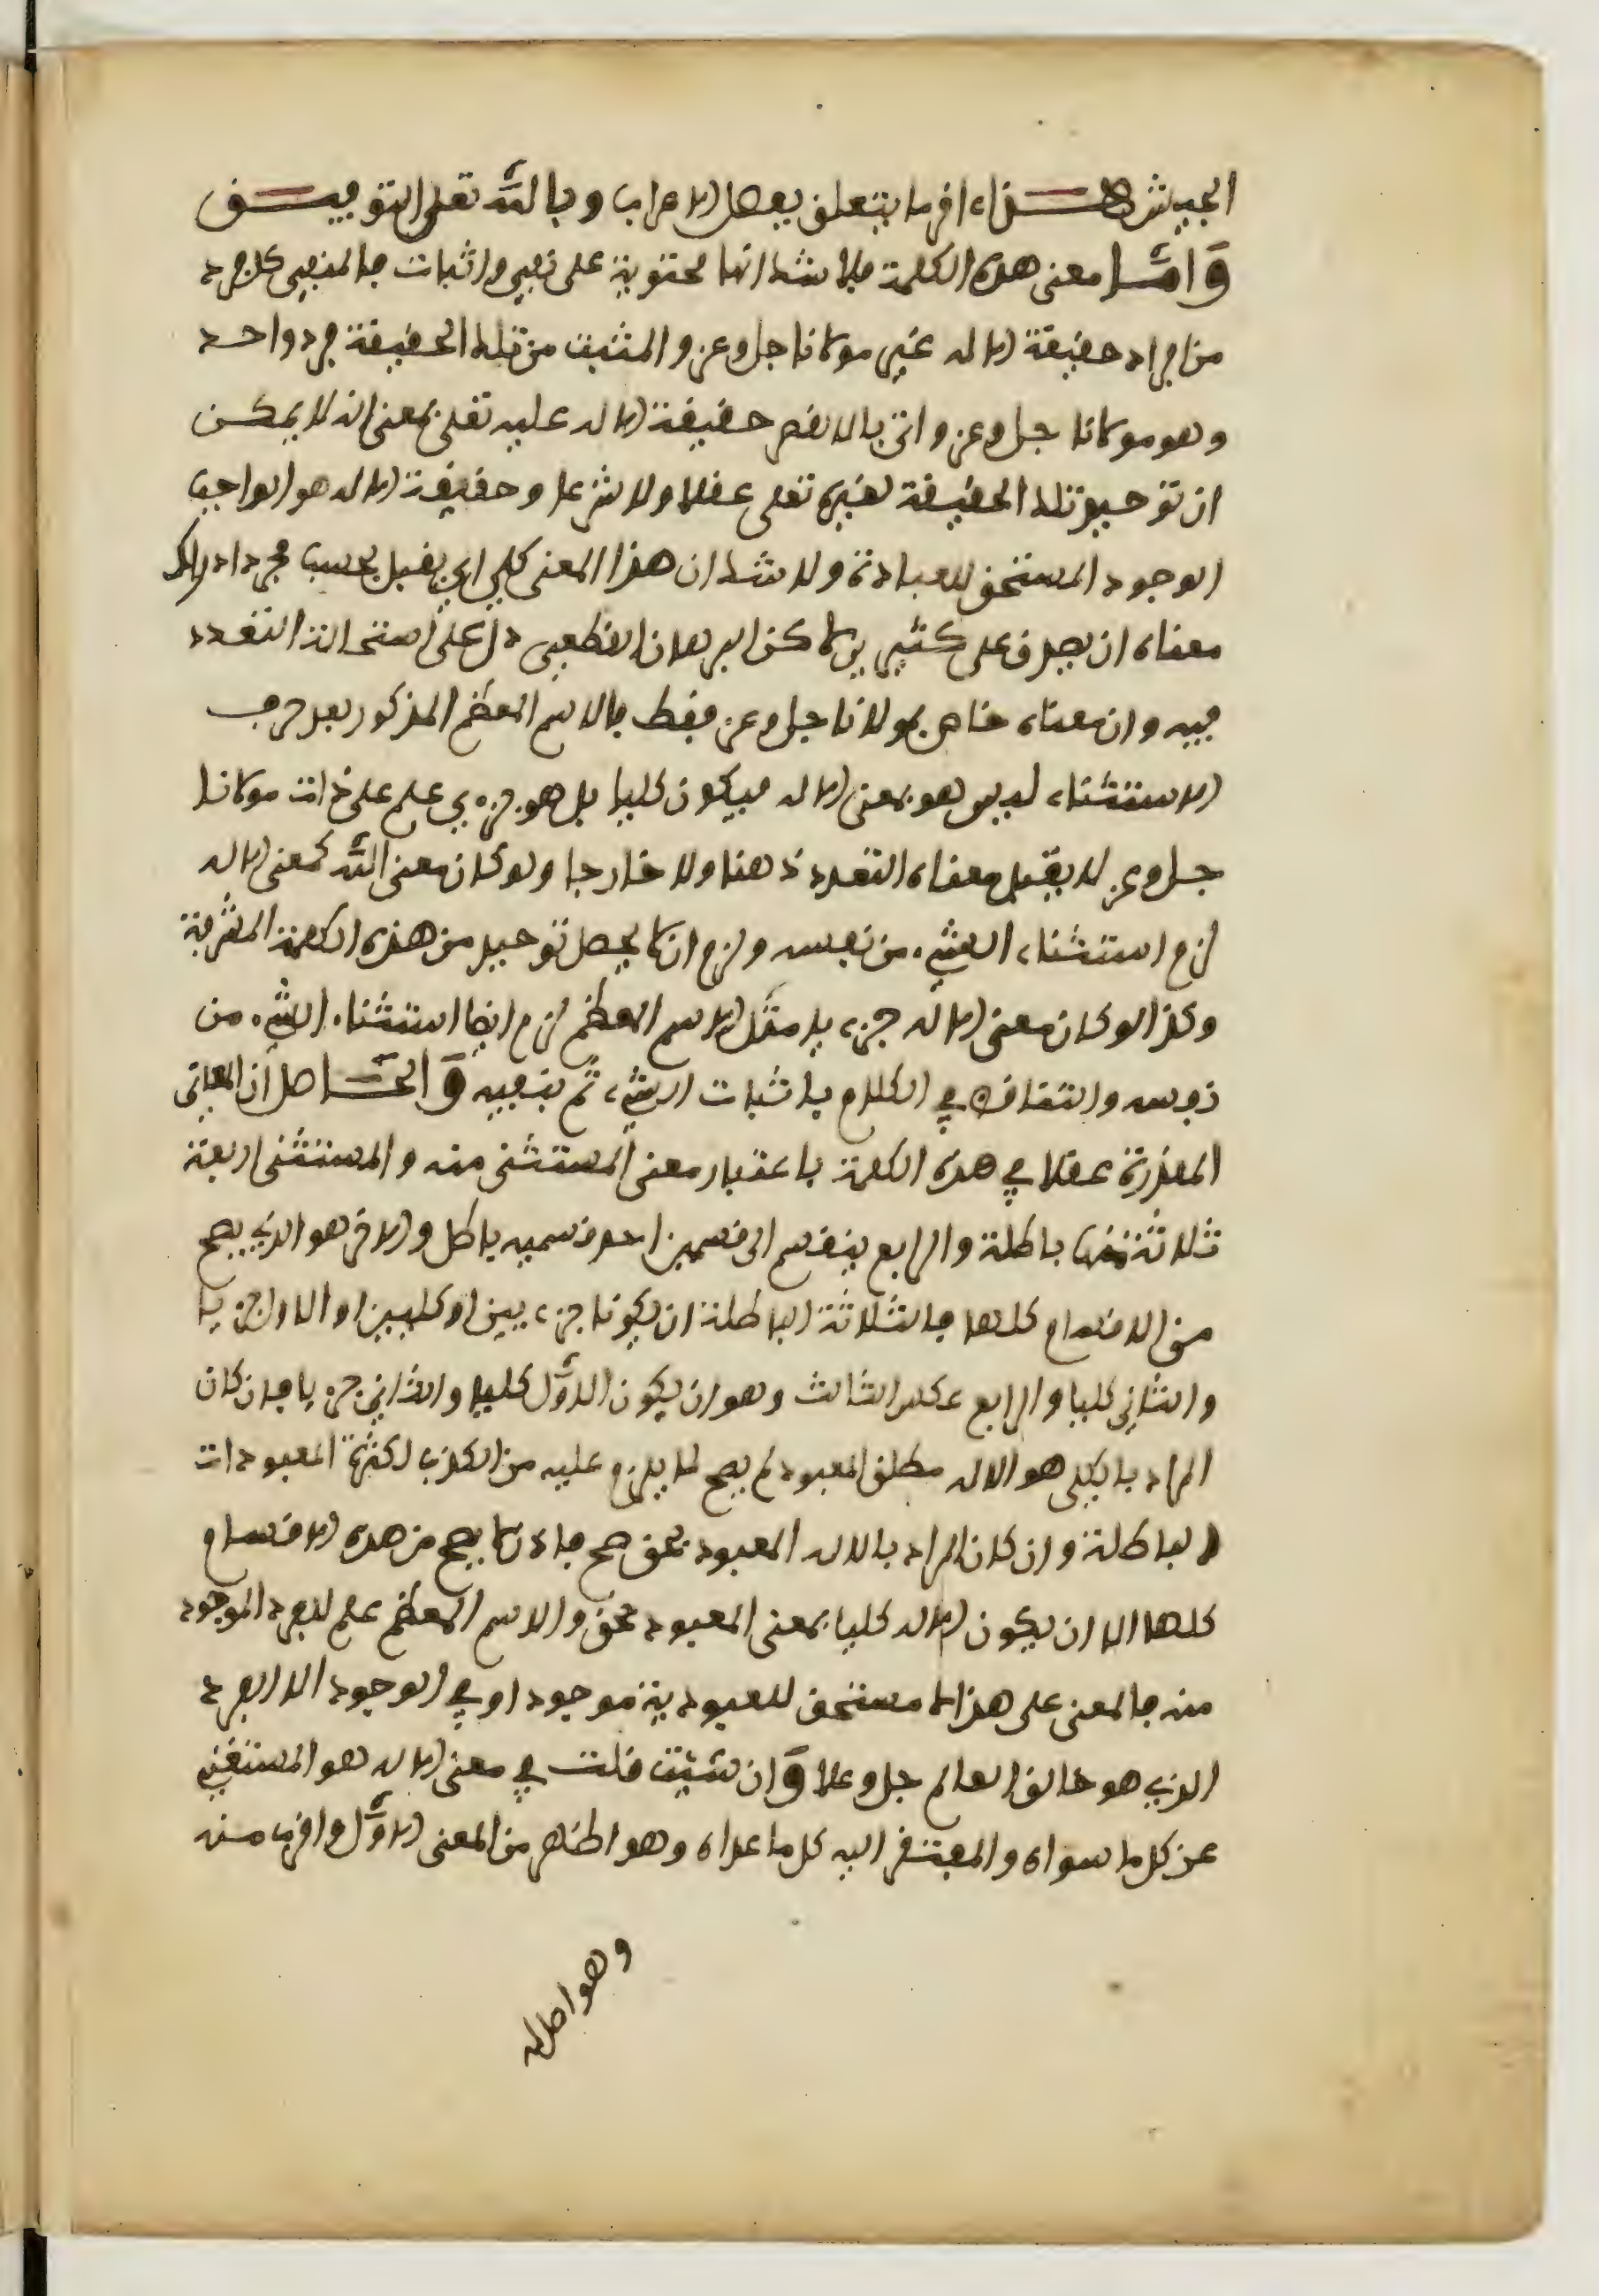 الجيش هذا اخر ما يتعلق بفصل الاعراب وبالله تعلى التوفيق
واما معنى هذه الكلمة فلا شك انها محتوية على نفي واثبات فالمنفي كل فرد
من افراد حقيقة الاله غير مولانا جل وعز والمثبت من تلك الحقيقة فرد واحد
وهو مولانا جل وعز واتي بالا لقصر حقيقة الاله عليه تعلى بمعنى انه لا يمكن
ان توجد تلك الحقيقة لغيره تعلى عقلا ولا شرعا وحقيقة الاله هو الواجب
الوجود المستحق للعبادة ولا شك ان هذا المعنى كلي اي يقبل بحسب مجرد ادراك
معناه ان يصدق على كثيرين لاكن البرهان القطعي دل على استحالة التعدد
فيه وان معناه خاص بمولانا جل وعز فقط فالاسم المعظم المذكور بعد حرف
الاستثناء ليس هو بمعنى الاله فيكون كليا بل هو جزءي علم على ذات مولانا
جل وعز لا يقبل معناه التعدد ذهنا ولا خارجا ولو كان معنى الله كمعنى الاله
لزم استثناء الشيء من نفسه ولزم ان لا يحصل توحيد من هذه الكلمة المشرفة
وكذا لو كان معنى الاله جزءيا مثل الاسم المعظم لزم ايضا استثناء الشيء من
نفسه والتناقض في الكلام باثبات الشيء ثم بنفيه والحاصل ان المعاني
المقدرة عقلا في هذه الكلمة باعتبار معنى المستثنى منه والمستثنى اربعة
ثلاثة منها باطلة والرابع ينقسم الى قسمين احد قسميه باطل والاخر هو الذي يصح
من الاقسام كلها فالثلاثة الباطلة ان يكونا جزءيين او كليين او الاول جزءيا
والثاني كليا والرابع عكس الثالث وهو ان يكون الاول كليا والثاني جزءيا فان كان
المراد بالكلي هو الاله مطلق المعبود لم يصح لما يلزم عليه من الكذب لكثرة المعبودات
الباطلة وان كان المراد بالاله المعبود بحق صح فاذا لا يصح من هذه الاقسام
كلها الا ان يكون الاله كليا بمعنى المعبود بحق والاسم المعظم علم للفرد الموجود
منه فالمعنى على هذا لا مستحق للعبودية موجود او في الوجود الا الفرد
الذي هو خالق العالم جل وعلا وان شئت قلت في معنى الاله هو المستغني
عن كل ما سواه والمفتقر اليه كل ما عداه وهو اظهر من المعنى الاول واقرب منه
وهو اصل له